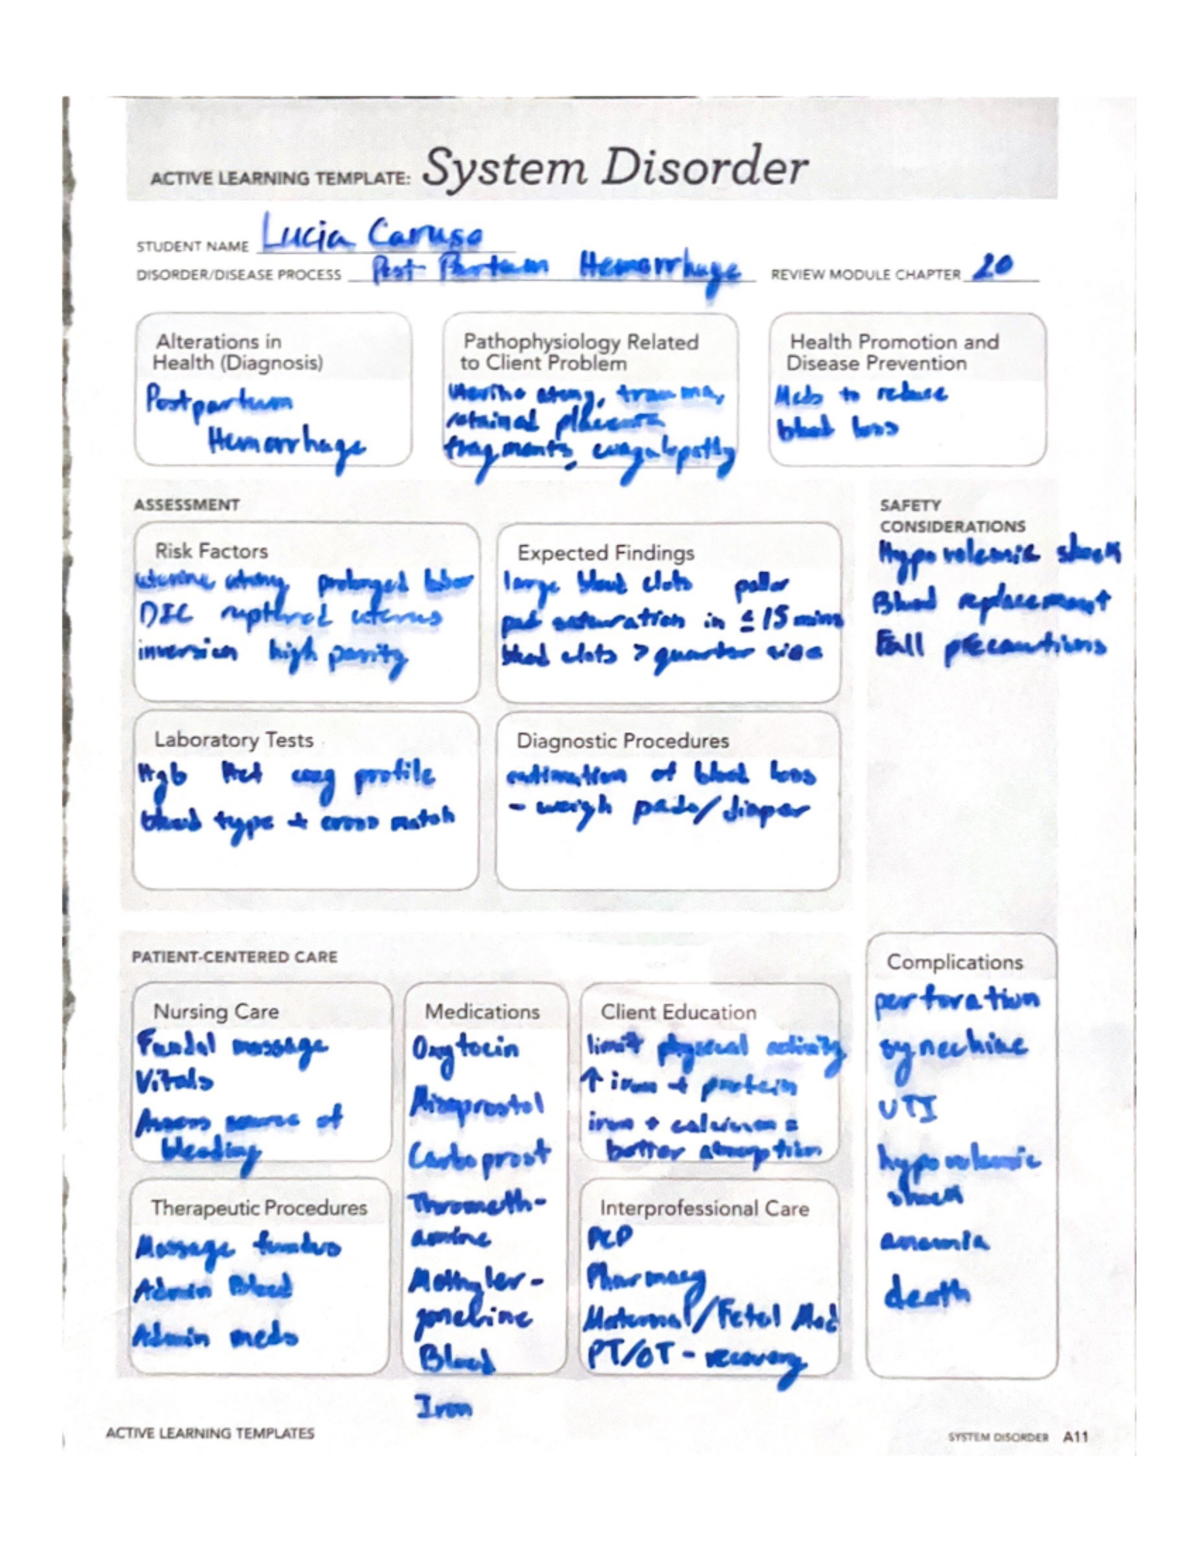 ACTIVE LEARNING TEMPLATE: System Disorder
STUDENT NAME Lucia Caruso
DISORDER/DISEASE PROCESS Post Partum Hemorrhage REVIEW MODULE CHAPTER 20
Alterations in
Health (Diagnosis)
Postpartum
Hemorrhage
Pathophysiology Related
to Client Problem
Uterine atony, trauma,
retained placenta
fragments, coagulopathy
Health Promotion and
Disease Prevention
Meds to reduce
blood loss
ASSESSMENT
Risk Factors
uterine atony prolonged labor
DIC ruptured uterus
inversion high parity
Expected Findings
large blood clots pallor
pad saturation in ≤ 15 mins
blood clots > quarter size
SAFETY
CONSIDERATIONS
Hypovolemic shock
Blood replacement
Fall precautions
Laboratory Tests
Hgb Hct coag profile
blood type + cross match
Diagnostic Procedures
estimation of blood loss
- weigh pads/diaper
PATIENT-CENTERED CARE
Nursing Care
Fundal massage
Vitals
Assess source of
bleeding
Medications
Oxytocin
Misoprostol
Carboprost
Thrometh-
amine
Methyler-
gonovine
Blood
Iron
Client Education
limit physical activity
↑ iron + protein
iron + calcium =
better absorption
Therapeutic Procedures
Massage fundus
Admin Blood
Admin meds
Interprofessional Care
PCP
Pharmacy
Maternal/Fetal Med
PT/OT - recovery
Complications
perforation
synechiae
UTI
hypovolemic
shock
anemia
death
ACTIVE LEARNING TEMPLATES
SYSTEM DISORDER A11